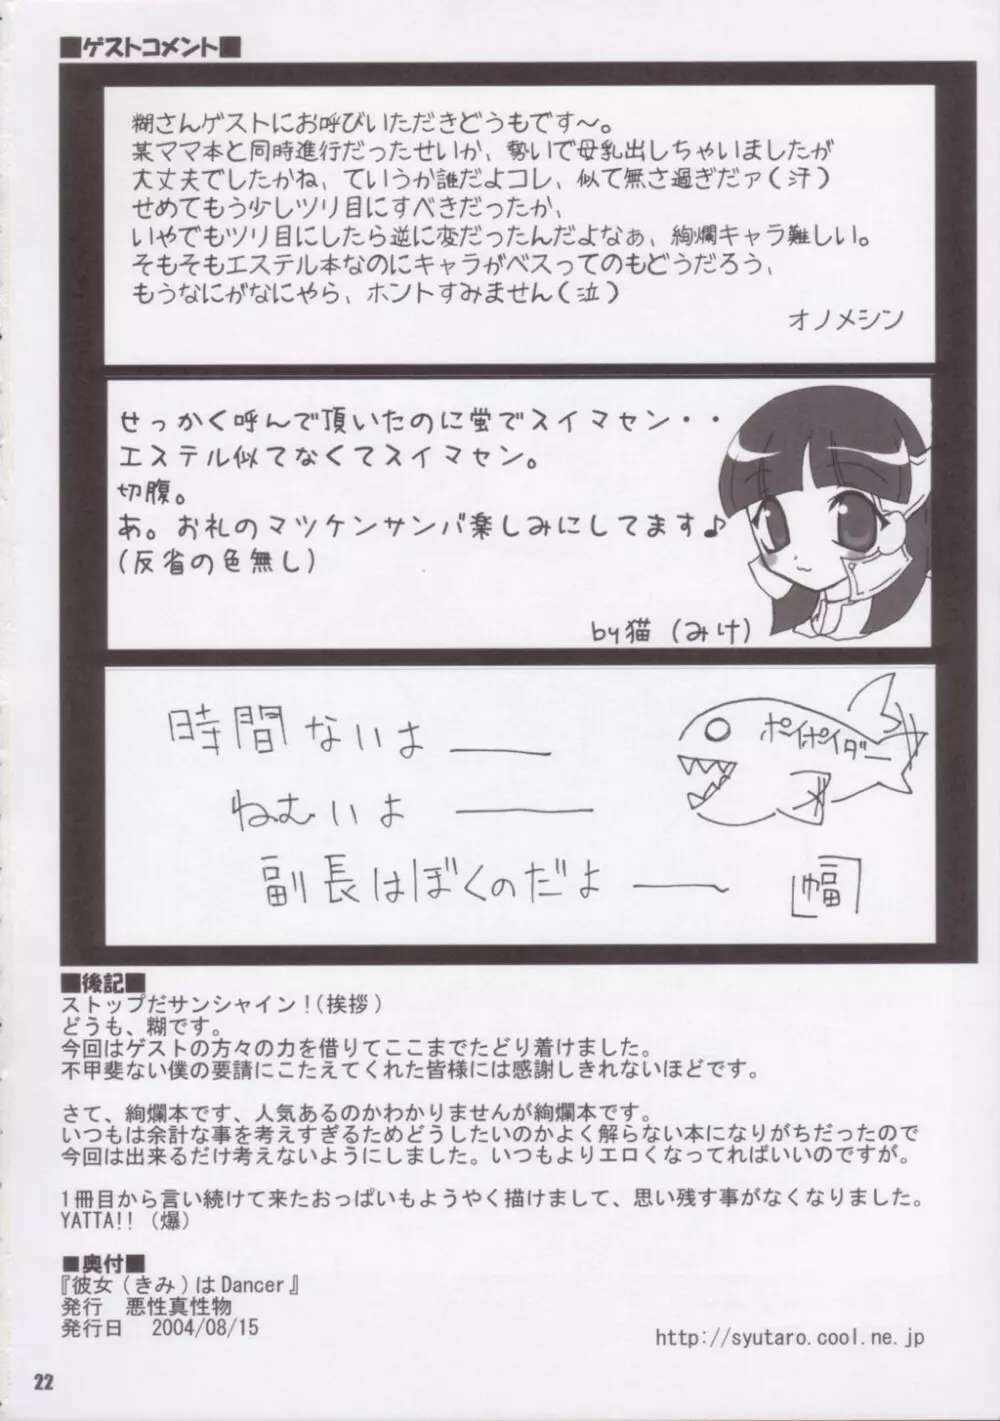 ■ゲストコメント■
糊さんゲストにお呼びいただきどうもです～。
某ママ本と同時進行だったせいか、勢いで母乳出しちゃいましたが
大丈夫でしたかね、ていうか誰だよコレ、似て無さ過ぎだァ(汗)
せめてもう少しツリ目にすべきだったか、
いやでもツリ目にしたら逆に変だったんだよなぁ、絢爛キャラ難しい。
そもそもエステル本なのにキャラがベスってのもどうだろう、
もうなにがなにやら、ホントすみません(泣)
オノメシン
せっかく呼んで頂いたのに蛍でスイマセン・・
エステル似てなくてスイマセン。
切腹。
あ。お礼のマツケンサンバ楽しみにしてます♪
(反省の色無し)
by猫 (みけ)
時間ないよ――
ねむいよ ――
副長はぼくのだよ ――
[幅]
ポイポイダー
■後記■
ストップだサンシャイン!(挨拶)
どうも、糊です。
今回はゲストの方々の力を借りてここまでたどり着けました。
不甲斐ない僕の要請にこたえてくれた皆様には感謝しきれないほどです。
さて、絢爛本です、人気あるのかわかりませんが絢爛本です。
いつもは余計な事を考えすぎるためどうしたいのかよく解らない本になりがちだったので
今回は出来るだけ考えないようにしました。いつもよりエロくなってればいいのですが。
1冊目から言い続けて来たおっぱいもようやく描けまして、思い残す事がなくなりました。
YATTA!! (爆)
■奥付■
『彼女(きみ)はDancer』
発行 悪性真性物
発行日 2004/08/15
http://syutaro.cool.ne.jp
22